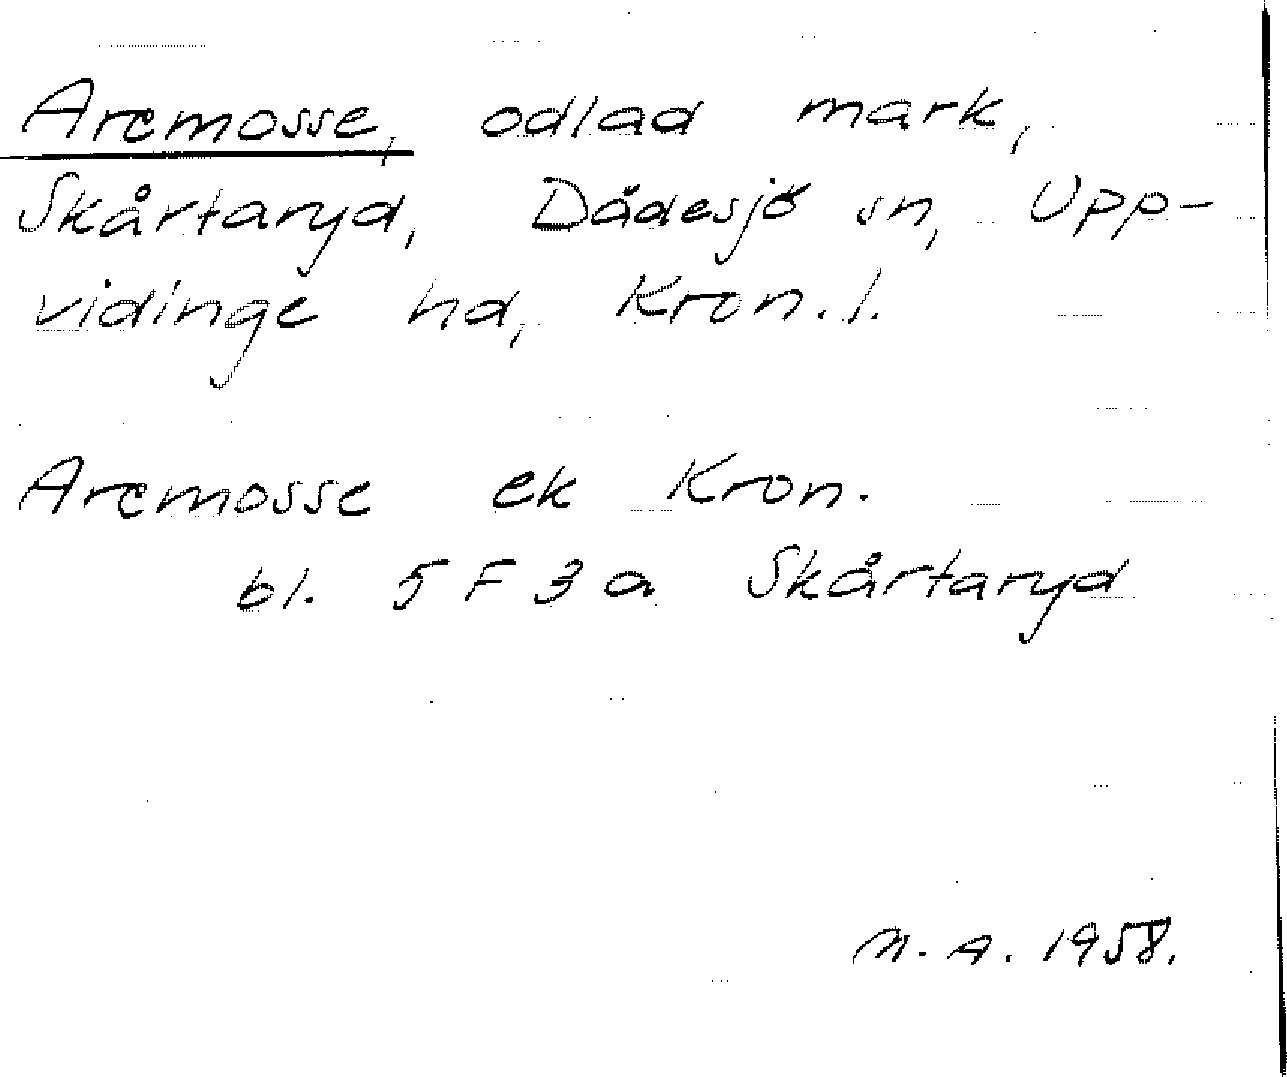 Aremosse, odlad mark,
Skårtaryd, Dädesjö sn, Upp-
vidinge hd, Kron.l.
Aremosse ek Kron.
bl. 5 F 3 a Skårtaryd
M.A. 1958.